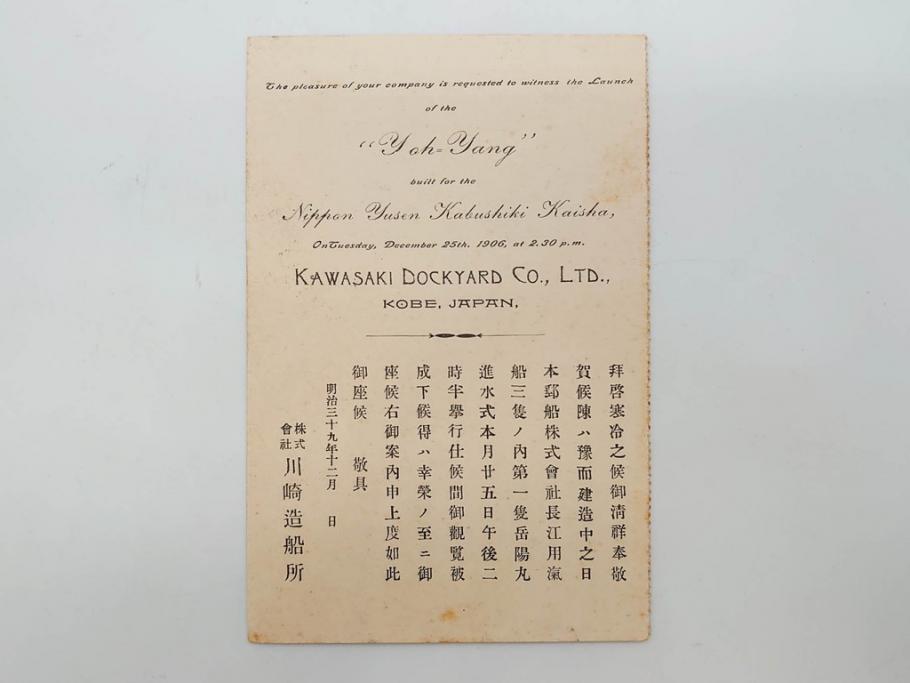 The pleasure of your company is requested to witness the Launch
of the
“Yoh=Yang”
built for the
Nippon Yusen Kabushiki Kaisha,
On Tuesday, December 25th, 1906, at 2.30 p.m.
KAWASAKI DOCKYARD CO., LTD.,
KOBE, JAPAN,
拜啓寒冷之候御淸祥奉敬
賀候陳ハ豫而建造中之日
本郵船株式會社長江用滊
船三隻ノ內第一隻岳陽丸
進水式本月廿五日午後二
時半擧行仕候間御觀覽被
成下候得ハ幸榮ノ至ニ御
座候右御案內申上度如此
御座候 敬具
明治三十九年十二月 日
株式會社川崎造船所